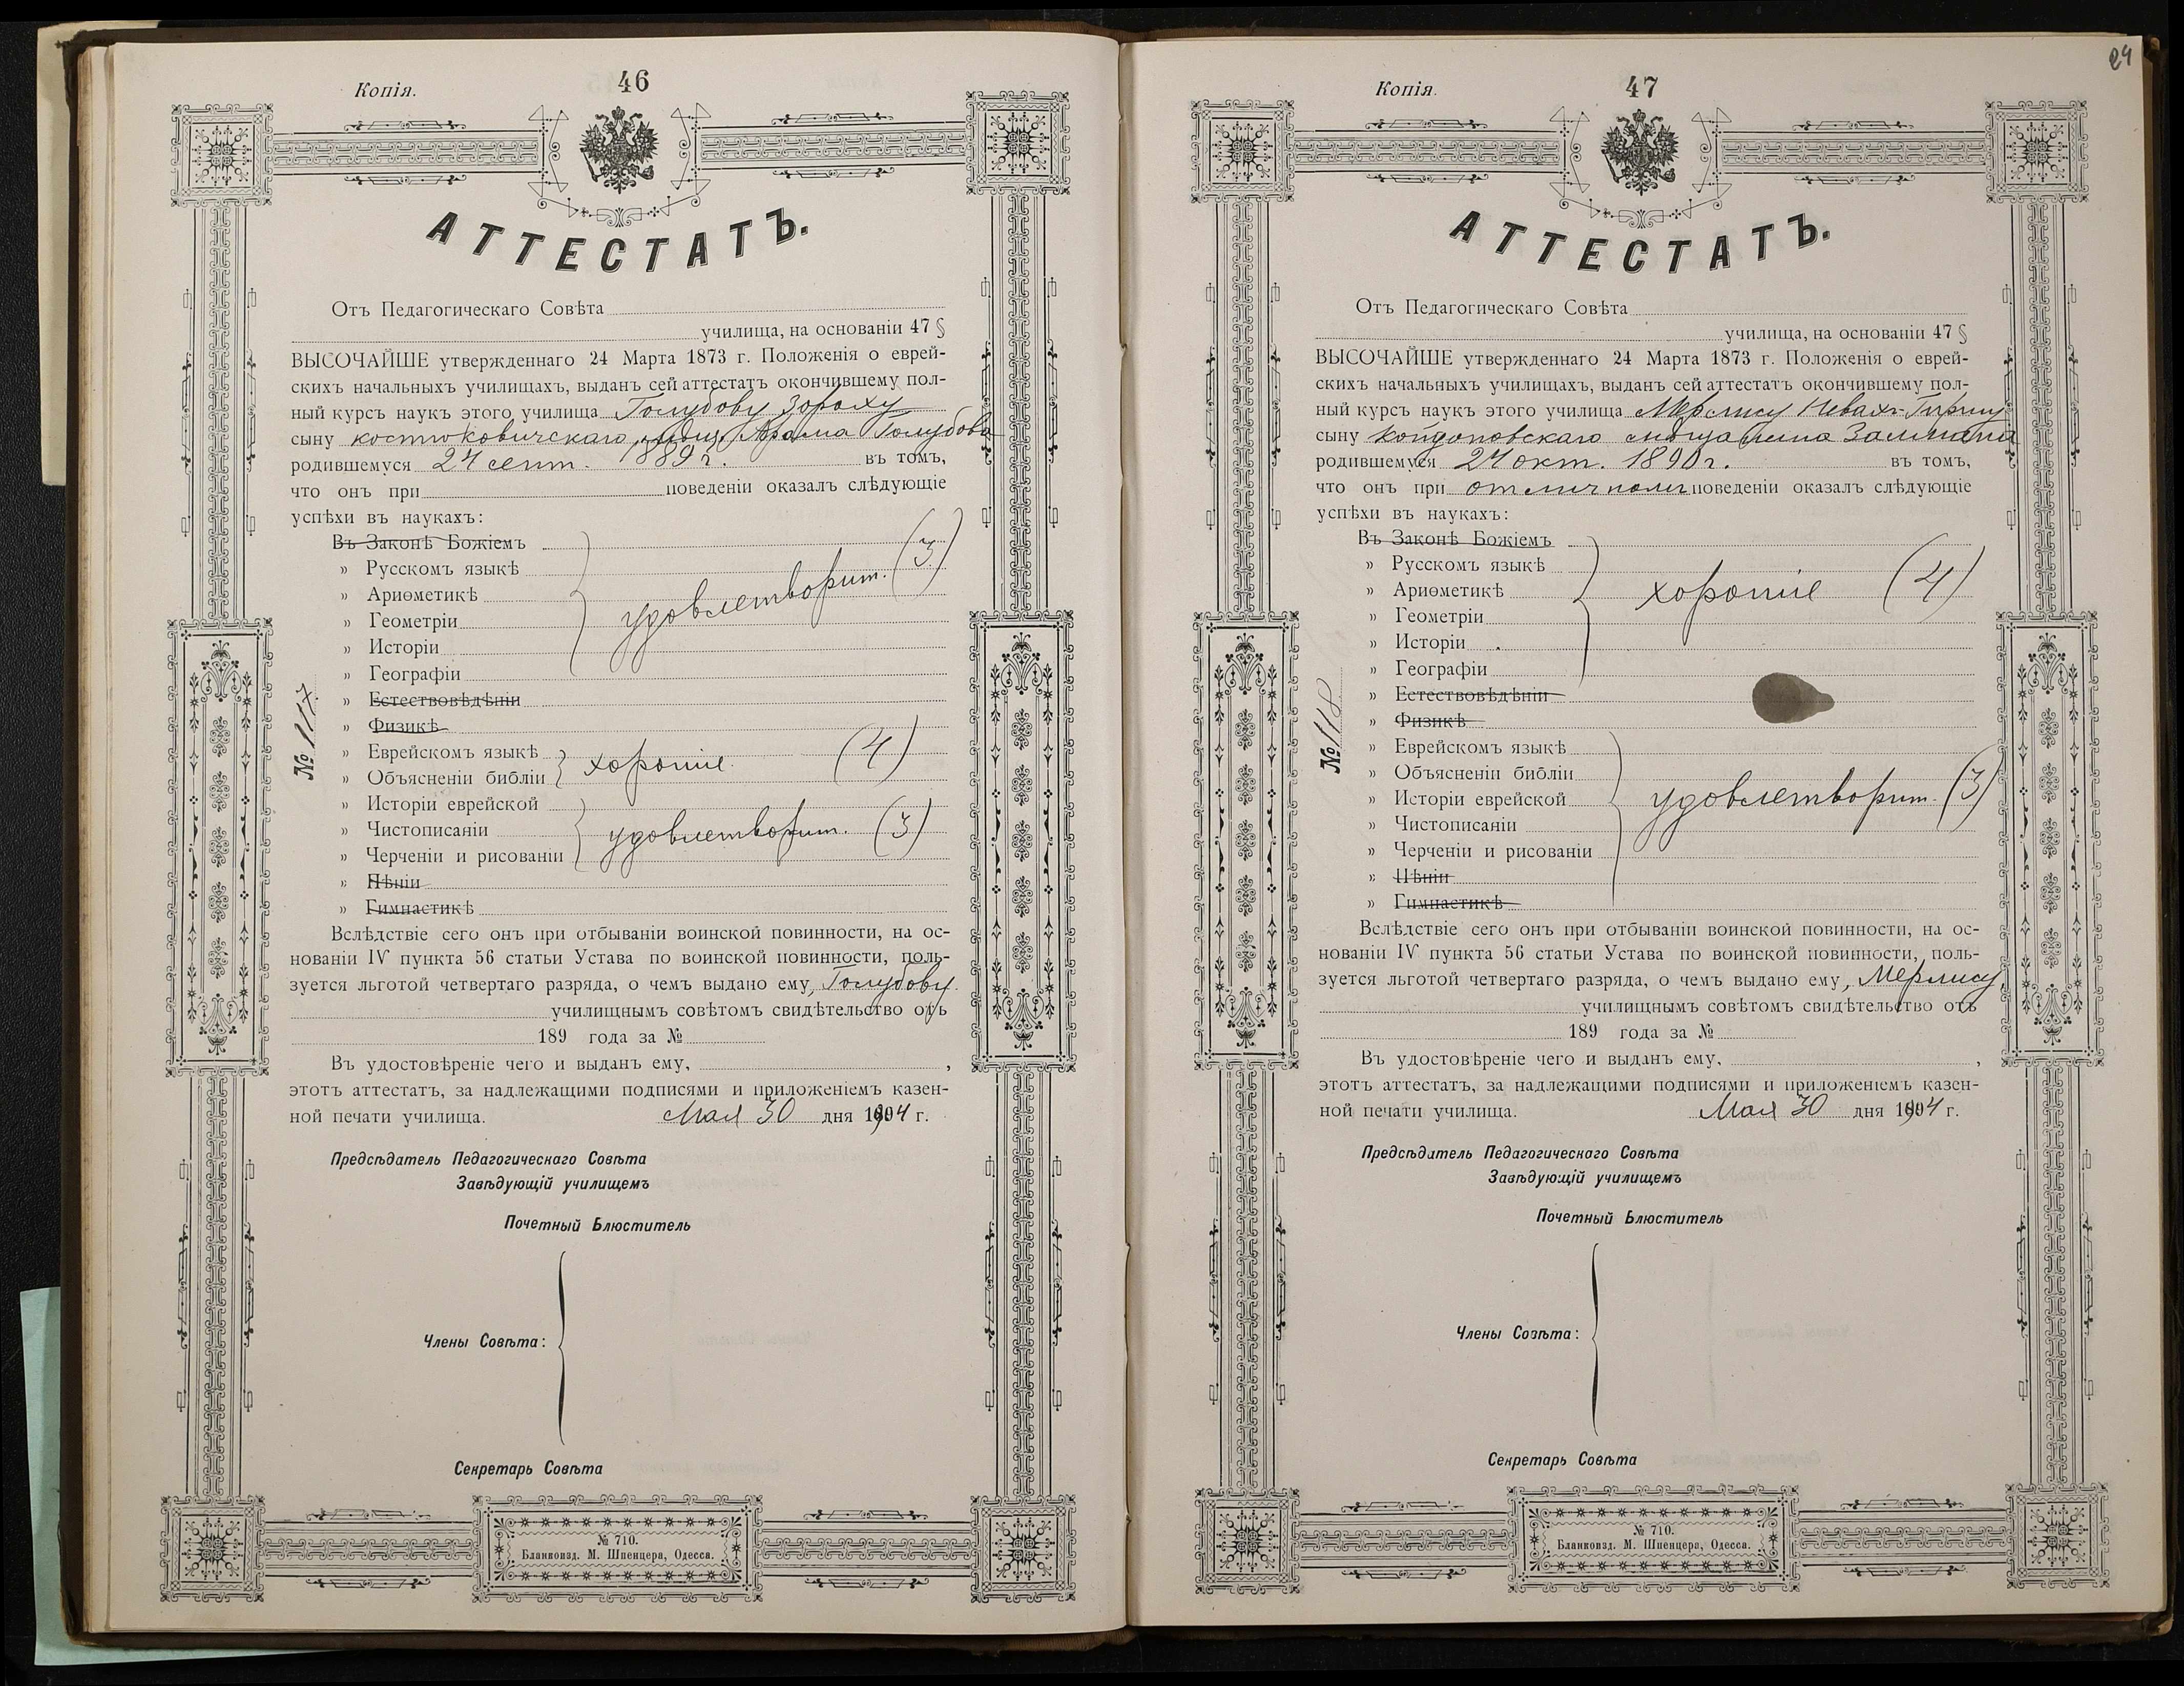 Копія.
46
АТТЕСТАТЪ.
Отъ Педагогическаго Совѣта
училища, на основаніи 47 §
ВЫСОЧАЙШЕ утвержденнаго 24 Марта 1873 г. Положенія о еврей-
скихъ начальныхъ училищахъ, выданъ сей аттестатъ окончившему пол-
ный курсъ наукъ этого училища Голубову Зораху
сыну костюковичскаго мѣщ. Голубова
родившемуся 24 сент. 1889 г. въ томъ,
что онъ при поведеніи оказалъ слѣдующіе
успѣхи въ наукахъ:
Въ Законѣ Божіемъ
» Русскомъ языкѣ
» Ариѳметикѣ
» Геометріи
» Исторіи
» Географіи
удовлетворит. (3)
» Естествовѣдѣніи
» Физикѣ
» Еврейскомъ языкѣ
» Объясненіи библіи
хорошіе (4)
» Исторіи еврейской
» Чистописаніи
» Черченіи и рисованіи
удовлетворит. (3)
» Пѣніи
» Гимнастикѣ
№ 117.
Вслѣдствіе сего онъ при отбываніи воинской повинности, на ос-
нованіи IV пункта 56 статьи Устава по воинской повинности, поль-
зуется льготой четвертаго разряда, о чемъ выдано ему, Голубову
училищнымъ совѣтомъ свидѣтельство отъ
189 года за №
Въ удостовѣреніе чего и выданъ ему, ,
этотъ аттестатъ, за надлежащими подписями и приложеніемъ казен-
ной печати училища. Мая 30 дня 1904 г.
Предсѣдатель Педагогическаго Совѣта
Завѣдующій училищемъ
Почетный Блюститель
Члены Совѣта:
Секретарь Совѣта
№ 710.
Бланкоизд. М. Шпенцера, Одесса.
24
Копія.
47
АТТЕСТАТЪ.
Отъ Педагогическаго Совѣта
училища, на основаніи 47 §
ВЫСОЧАЙШЕ утвержденнаго 24 Марта 1873 г. Положенія о еврей-
скихъ начальныхъ училищахъ, выданъ сей аттестатъ окончившему пол-
ный курсъ наукъ этого училища Мерлису
сыну койдоновскаго мѣщанина Залмана
родившемуся 24 окт. 1890 г. въ томъ,
что онъ при отличномъ поведеніи оказалъ слѣдующіе
успѣхи въ наукахъ:
Въ Законѣ Божіемъ
» Русскомъ языкѣ
» Ариѳметикѣ
» Геометріи
» Исторіи
» Географіи
хорошіе (4)
» Естествовѣдѣніи
» Физикѣ
» Еврейскомъ языкѣ
» Объясненіи библіи
» Исторіи еврейской
» Чистописаніи
» Черченіи и рисованіи
удовлетворит. (3)
» Пѣніи
» Гимнастикѣ
№ 118.
Вслѣдствіе сего онъ при отбываніи воинской повинности, на ос-
нованіи IV пункта 56 статьи Устава по воинской повинности, поль-
зуется льготой четвертаго разряда, о чемъ выдано ему, Мерлису
училищнымъ совѣтомъ свидѣтельство отъ
189 года за №
Въ удостовѣреніе чего и выданъ ему, ,
этотъ аттестатъ, за надлежащими подписями и приложеніемъ казен-
ной печати училища. Мая 30 дня 1904 г.
Предсѣдатель Педагогическаго Совѣта
Завѣдующій училищемъ
Почетный Блюститель
Члены Совѣта:
Секретарь Совѣта
№ 710.
Бланкоизд. М. Шпенцера, Одесса.